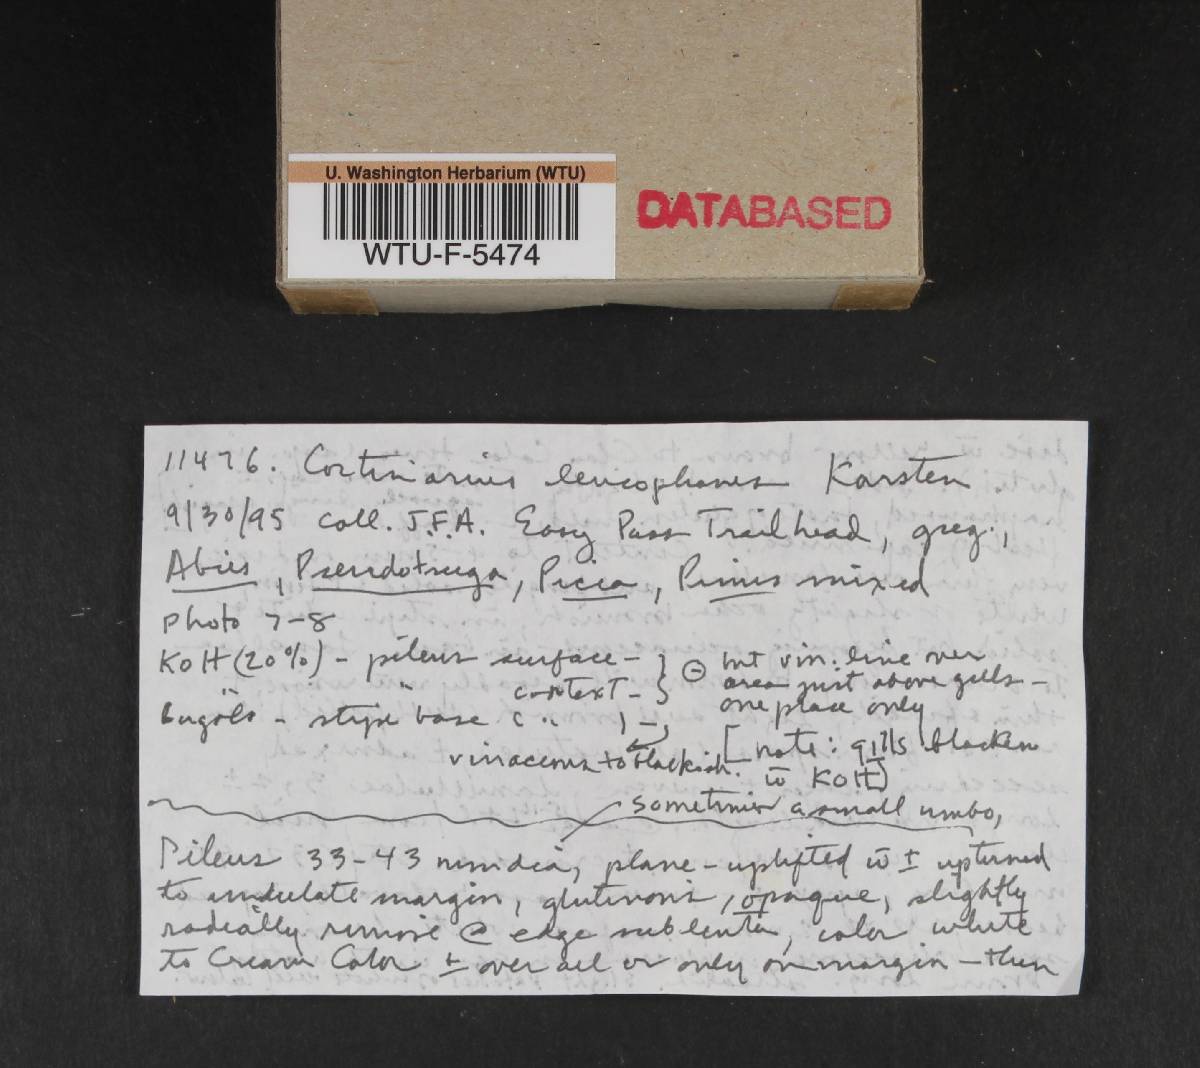 U. Washington Herbarium (WTU)
WTU-F-5474
DATABASED
11476. Cortinarius leucophanes Karsten
9/30/95 coll. J.F.A. Easy Pass Trailhead, greg.,
Abies, Pseudotsuga, Picea, Pinus mixed
photo 7-8
KOH (20%) - pileus surface - } ⊖ but vin. line over
" " context - } area just above gills -
one place only
Lugol's - stipe base
vinaceous to blackish. [note: gills blacken
w̄ KOH]
sometimes a small umbo,
Pileus 33-43 mm dia, plane-uplifted w̄ ± upturned
to undulate margin, glutinous, opaque, slightly
radially rimose @ edge sublentem, color white
to Cream Color ± over all or only on margin - then